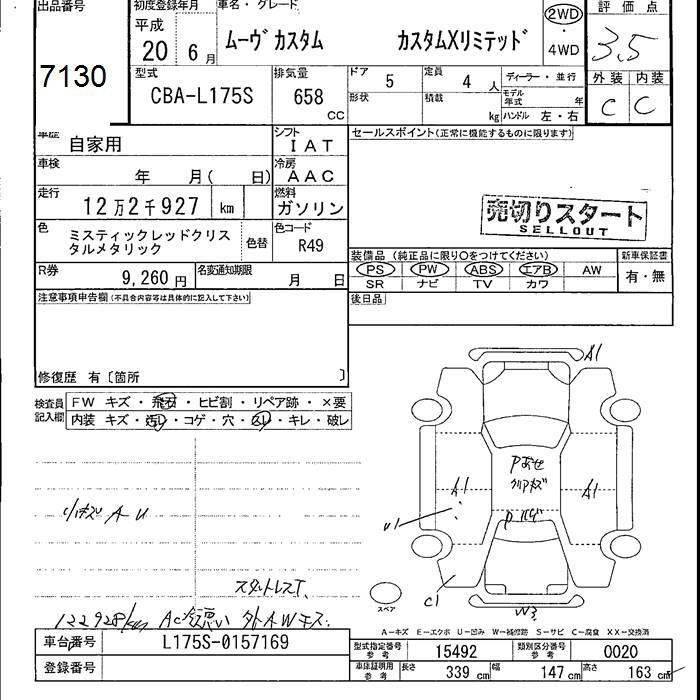 出品番号
7130
初度登録年月
平成
20 6月
車名・グレード
ムーヴカスタム カスタムXリミテッド
2WD
・
4WD
評価点
3.5
外装 内装
C C
型式
CBA-L175S
排気量
658 CC
ドア 5
形状
定員 4 人
積載 kg
ディーラー・並行
モデル年式 年
ハンドル 左・右
車歴 自家用
シフト IAT
車検 年 月( 日)
冷房 AAC
走行 12万2千927 km
燃料 ガソリン
色 ミスティックレッドクリス
タルメタリック
色替
色コード R49
R券 9,260円
名変通知期限 月 日
セールスポイント(正常に機能するものに限ります)
売切りスタート
SELLOUT
装備品 (純正品に限り○をつけてください)
PS PW ABS エアB AW
SR ナビ TV カワ
新車保証書
有・無
後日品
注意事項申告欄(不具合内容等は具体的に記入して下さい)
修復歴 有〔箇所 〕
検査員
記入欄
FW キズ・飛石・ヒビ割・リペア跡・×要
内装 キズ・汚レ・コゲ・穴・凹レ・キレ・破レ
小キズ A U
スタットレスT、
122928/km AC冷悪い 外AWキズ.
A1
A1
A1
U1
C1
W3
Pあせ
クリアキズ
P ハゲ
スペア
A－キズ E－エクボ U－凹み W－補修跡 S－サビ C－腐食 XX－交換済
車台番号 L175S-0157169
登録番号
型式指定番号 参考 15492
類別区分番号 参考 0020
車庫証明用 参考
長さ 339 cm
幅 147 cm
高さ 163 cm